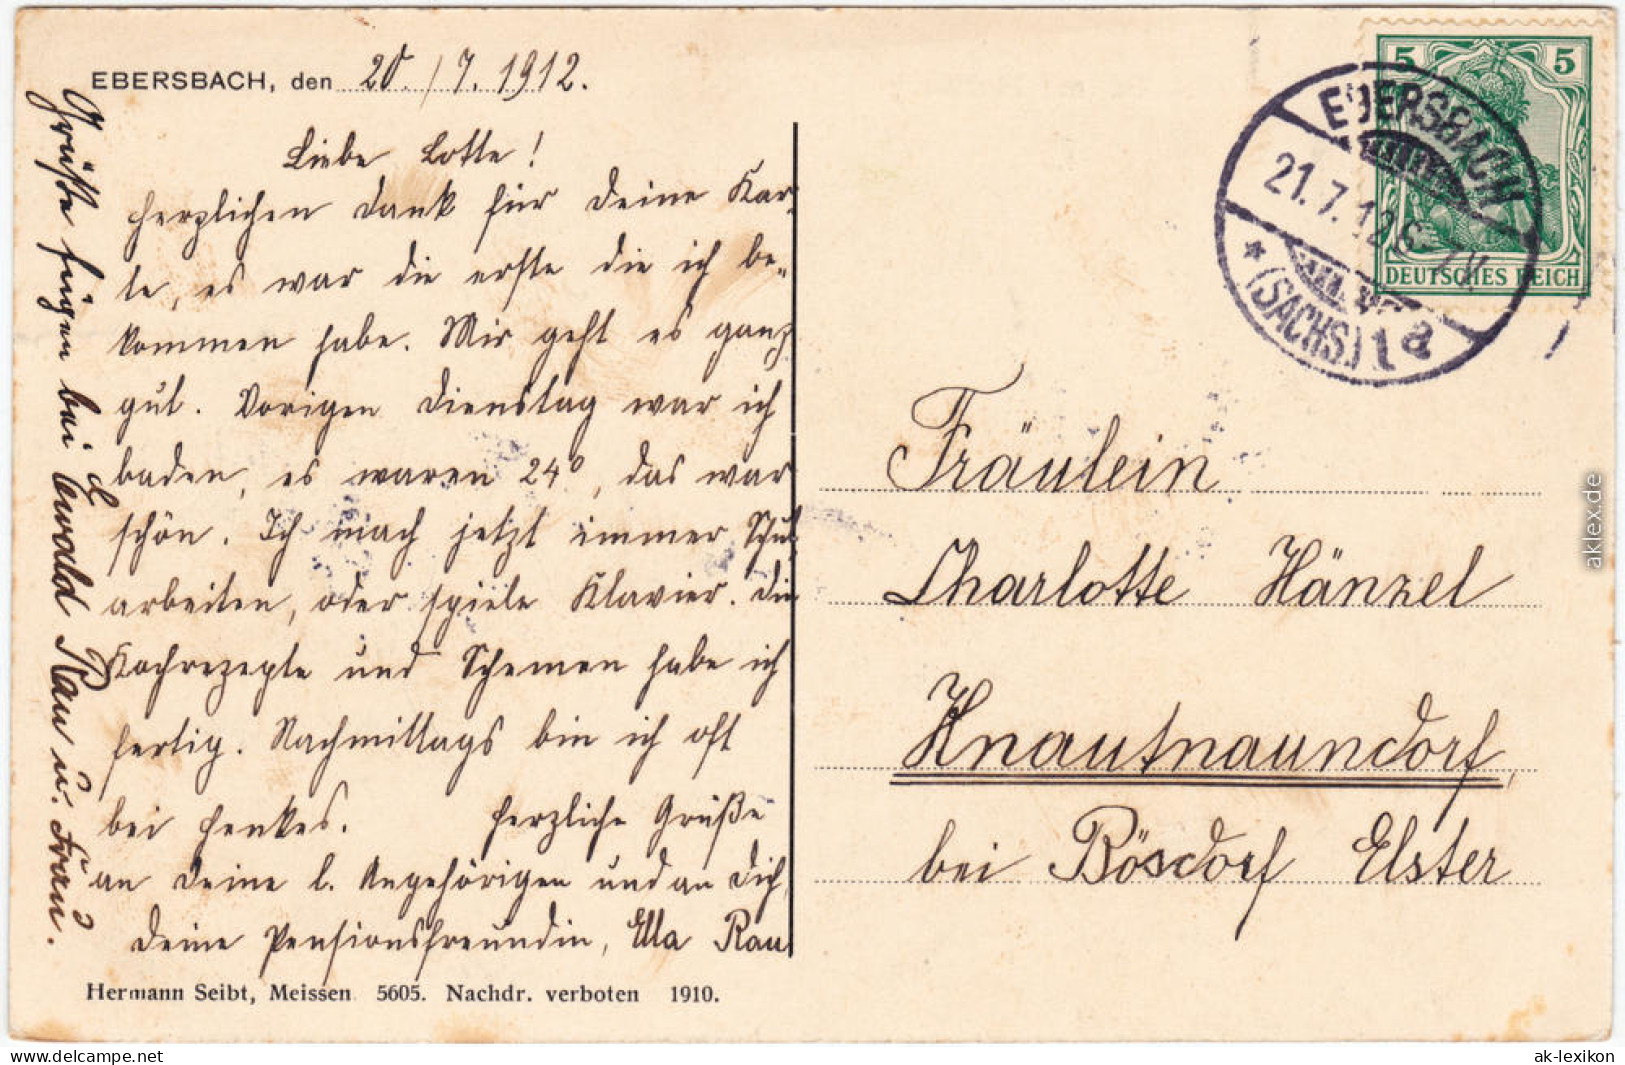 EBERSBACH, den 20./7. 1912.
Liebe Lotte!
Herzlichen Dank für Deine Kar-
te, es war die erste die ich be-
kommen habe. Mir geht es ganz
gut. Vorigen Dienstag war ich
baden, es waren 24°, das war
schön. Ich mach jetzt immer Schul-
arbeiten, oder spiele Klavier. Die
Kochrezepte und Schemen habe ich
fertig. Nachmittags bin ich oft
bei Henkes. Herzliche Grüße
an Deine l. Angehörigen und an Dich,
Deine Pensionsfreundin, Ella Rau
Grüße fügen bei Ewald Rau u. Frau.
Hermann Seibt, Meissen 5605. Nachdr. verboten 1910.
5 5
DEUTSCHES REICH
EBERSBACH
21.7.12. 6-7 V.
* (SACHS.) 1a
Fräulein
Charlotte Hänzel
Knautnaundorf,
bei Bösdorf Elster
aklex.de
https://www.delcampe.net
ak-lexikon